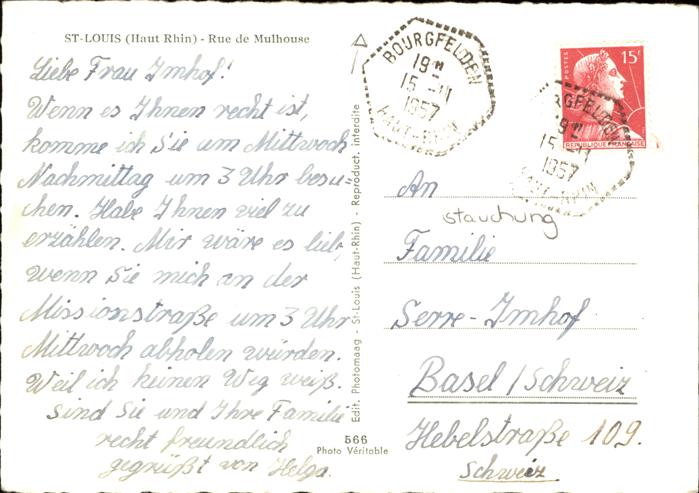 ST-LOUIS (Haut Rhin) - Rue de Mulhouse
Liebe Frau Imhof!
Wenn es Ihnen recht ist,
komme ich Sie am Mittwoch
Nachmittag um 3 Uhr besu-
chen. Habe Ihnen viel zu
erzählen. Mir wäre es lieb,
wenn Sie mich an der
Missionstraße um 3 Uhr
Mittwoch abholen würden.
Weil ich keinen Weg weiß.
Sind Sie und Ihre Familie
recht freundlich
gegrüßt von Helga.
Edit. Photomaag - St-Louis (Haut-Rhin) - Reproduct. interdite
566
Photo Véritable
BOURGFELDEN
19H
15-11
1957
HAUT-RHIN
POSTES
15F
REPUBLIQUE FRANÇAISE
RGFELDEN
19H
15-11
1957
HAUT-RHIN
An
stauchung
Familie
Serre-Imhof
Basel/Schweiz
Hebelstraße 109.
Schweiz